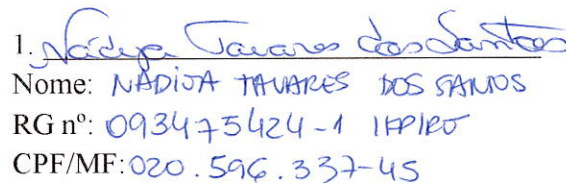 1. Nádija Tavares dos Santos
Nome: NADIJA TAVARES DOS SANTOS
RG nº: 093475424-1 IFP/RJ
CPF/MF: 020.596.337-45